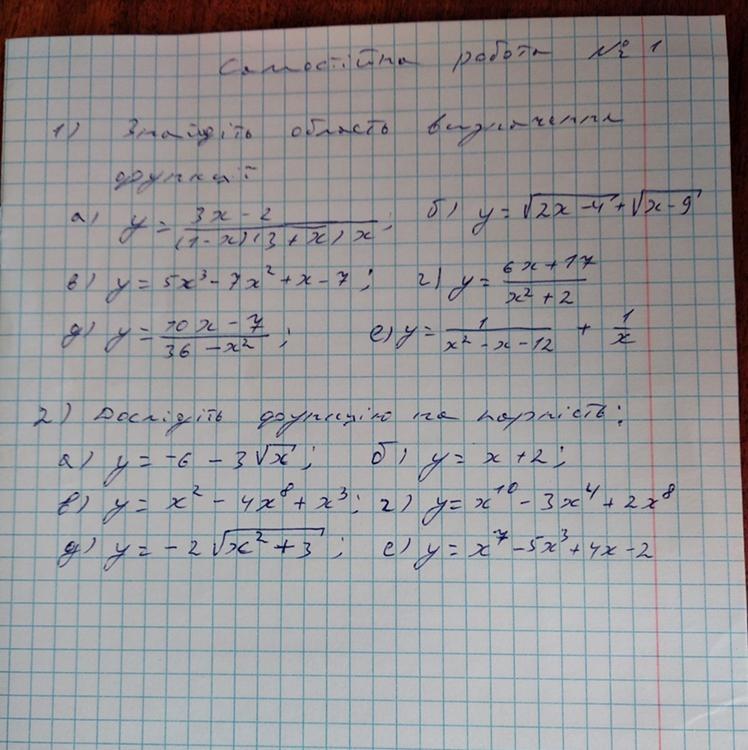 Самостійна робота № 1
1) Знайдіть область визначення
функції:
а) y = (3x - 2)/((1-x)(3+x)x); б) y = √(2x-4) + √(x-9)
в) y = 5x³ - 7x² + x - 7; г) y = (6x+17)/(x²+2)
д) y = (10x - 7)/(36 - x²); е) y = 1/(x² - x - 12) + 1/x
2) Дослідіть функцію на парність:
а) y = -6 - 3√x; б) y = x + 2;
в) y = x² - 4x⁸ + x³; г) y = x¹⁰ - 3x⁴ + 2x⁸
д) y = -2√(x² + 3); е) y = x⁷ - 5x³ + 4x - 2